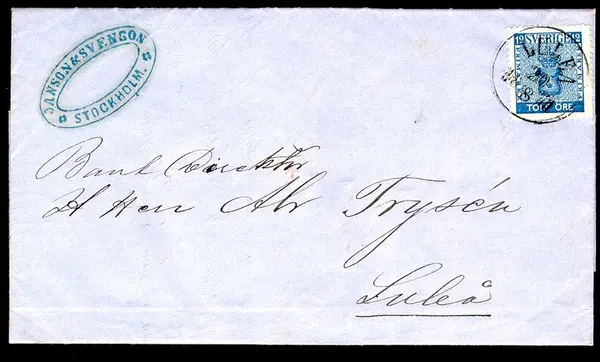 JANSON & SVENSON
STOCKHOLM.
12 SVERIGE 12
TOLF ÖRE
LULEÅ
Bank Direktör
H Herr Alr Trysén
Luleå